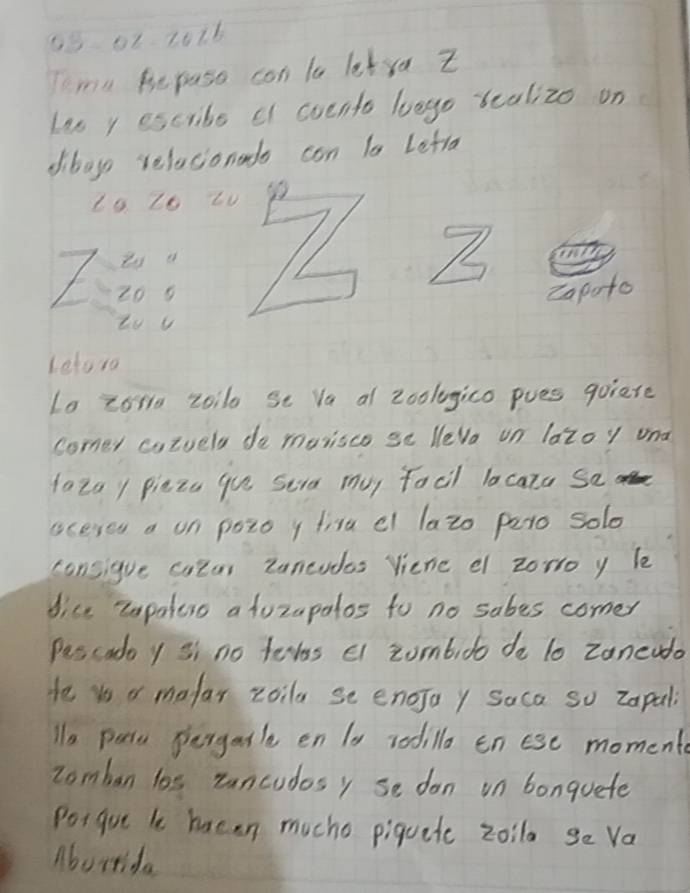 05-02-2026
Tema Repaso con la letra Z
Leo y escribo el cuento luego realizo un
dibujo relacionado con la Letra
Za Zo Zu
Z za a Z Z
zo o
zu u zapato
Letura
La zorra zoila se va al zoologico pues quiere
comer cazuela de marisco se lleva un lazo y una
taza y pieza que sera muy facil la caza se
acerca a un pozo y tira el lazo pero solo
consigue cazar zancudos Viene el zorro y le
dice zapatero a tuzapatos tu no sabes comer
Pescado y si no te vas el zumbido de lo zancudo
te va a matar zoila se enoja y saca su zapati
lla para pergarle en la rodilla en ese momento
zomban los zancudos y se dan un banquete
Porque le hacen mucho piquete zoila se va
Aburrida